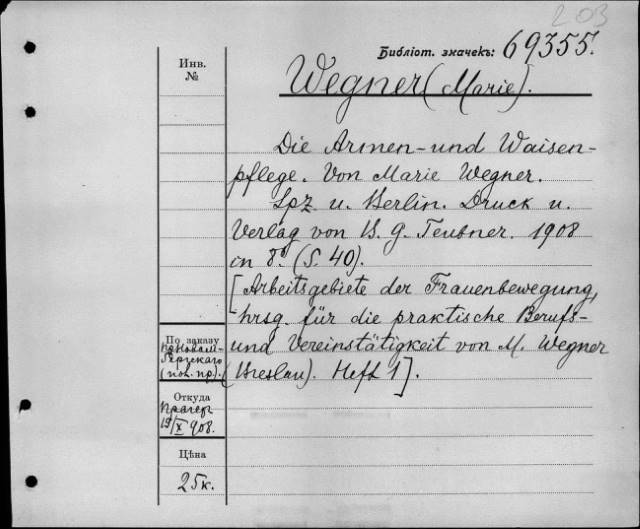 203
Библіот. значекъ: 69355.
Инв.
№
Wegner (Marie).
Die Armen- und Waisen-
pflege. Von Marie Wegner.
Lpz. u. Berlin. Druck u.
Verlag von B. G. Teubner. 1908
in 8º. (S. 40).
[Arbeitsgebiete der Frauenbewegung,
hrsg. für die praktische Berufs-
und Vereinstätigkeit von M. Wegner
(Breslau). Heft 1].
По заказу
Откуда
19/X 908.
Цѣна
25 к.